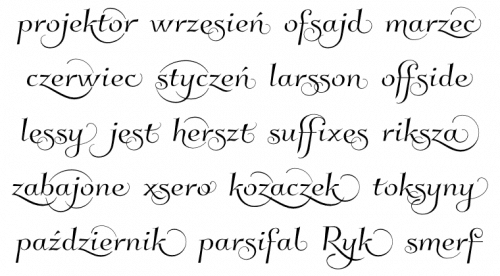 projektor wrzesień ofsajd marzec
czerwiec styczeń larsson offside
lessy jest herszt suffixes riksza
zabajone xsero kozaczek toksyny
październik parsifal Ryk smerf